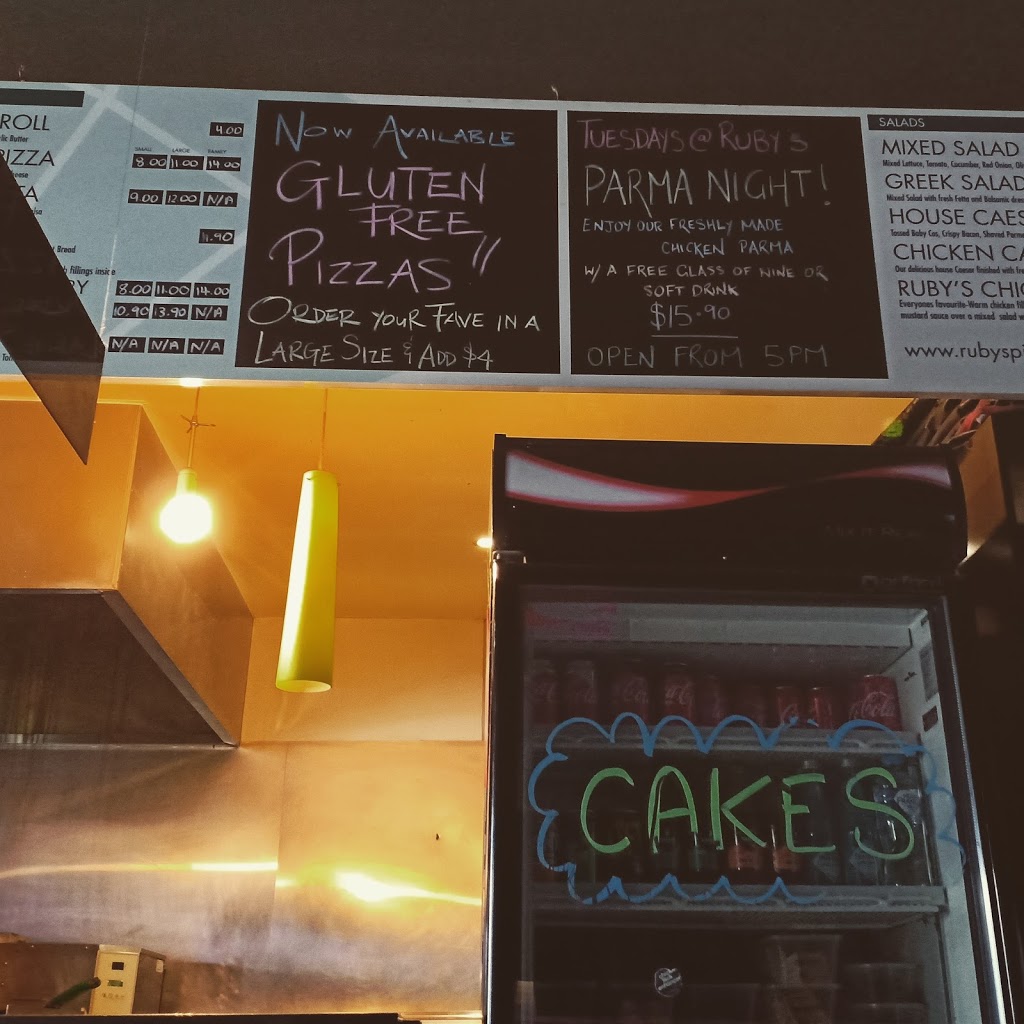 ROLL
4.00
SMALL LARGE FAMILY
PIZZA 8.00 11.00 14.00
9.00 12.00 N/A
11.90
Bread
fillings inside
8.00 11.00 14.00
10.90 13.90 N/A
N/A N/A N/A
NOW AVAILABLE
GLUTEN
FREE
PIZZAS
ORDER YOUR FAVE IN A
LARGE SIZE & ADD $4
TUESDAYS @ RUBY'S
PARMA NIGHT!
ENJOY OUR FRESHLY MADE
CHICKEN PARMA
W/ A FREE GLASS OF WINE OR
SOFT DRINK
$15.90
OPEN FROM 5PM
SALADS
MIXED SALAD
Mixed Lettuce, Tomato, Cucumber, Red Onion,
GREEK SALAD
Mixed Salad with fresh Fetta and Balsamic
HOUSE CAES
Tossed Baby Cos, Crispy Bacon, Shaved
CHICKEN CA
Our delicious house Caeser finished with
RUBY'S CHIC
Everyones favourite-Warm chicken
mustard sauce over a mixed salad
www.rubysp
CAKES